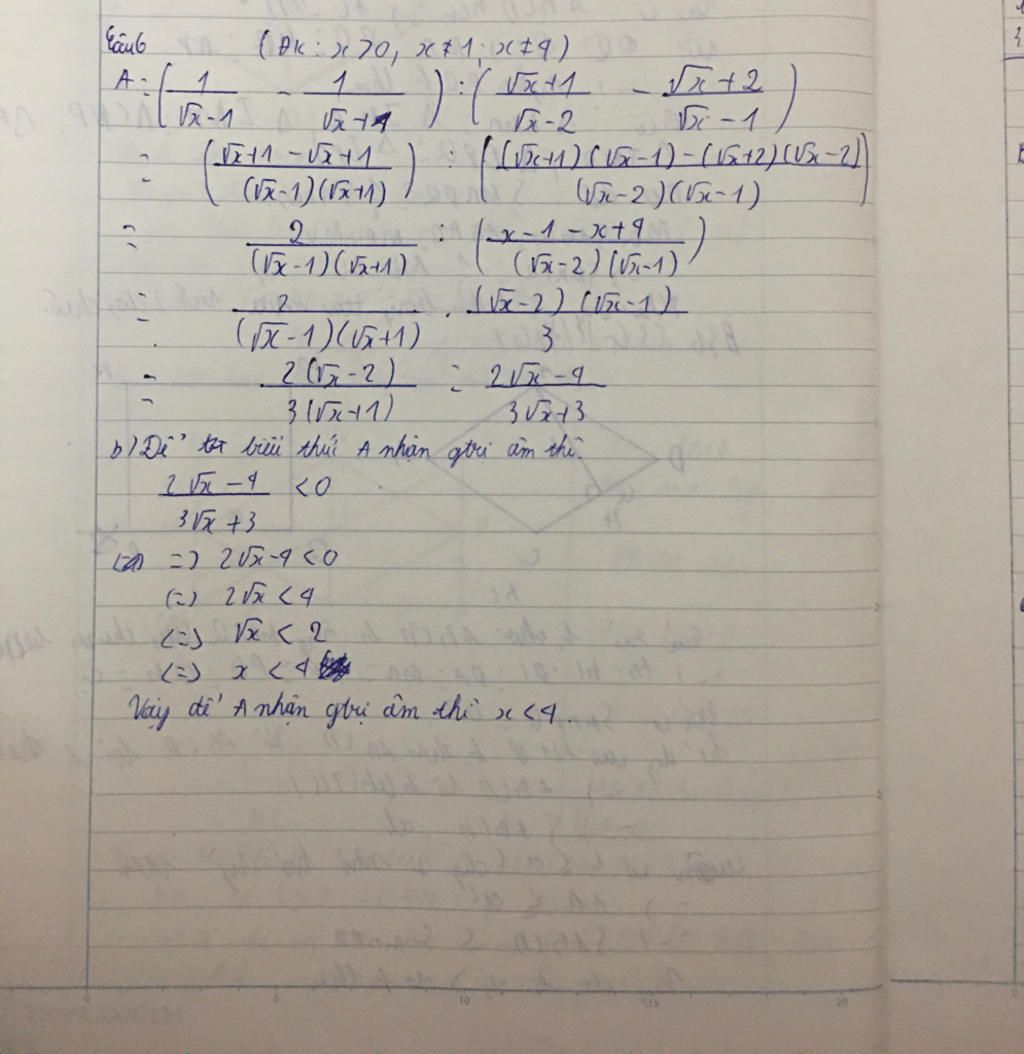 Câu 6 (ĐK: x > 0, x ≠ 1; x ≠ 4)
A = (1/(√x-1) - 1/(√x+1)) : ((√x+1)/(√x-2) - (√x+2)/(√x-1))
= ((√x+1-√x+1)/((√x-1)(√x+1))) : (((√x+1)(√x-1)-(√x+2)(√x-2))/((√x-2)(√x-1)))
= 2/((√x-1)(√x+1)) : ((x-1-x+4)/((√x-2)(√x-1)))
= 2/((√x-1)(√x+1)) . ((√x-2)(√x-1))/3
= 2(√x-2)/(3(√x+1)) = (2√x-4)/(3√x+3)
b) Để biểu thức A nhận gtrị âm thì
(2√x-4)/(3√x+3) < 0
=) 2√x-4 < 0
(=) 2√x < 4
(=) √x < 2
(=) x < 4
Vậy để A nhận gtrị âm thì x < 4.